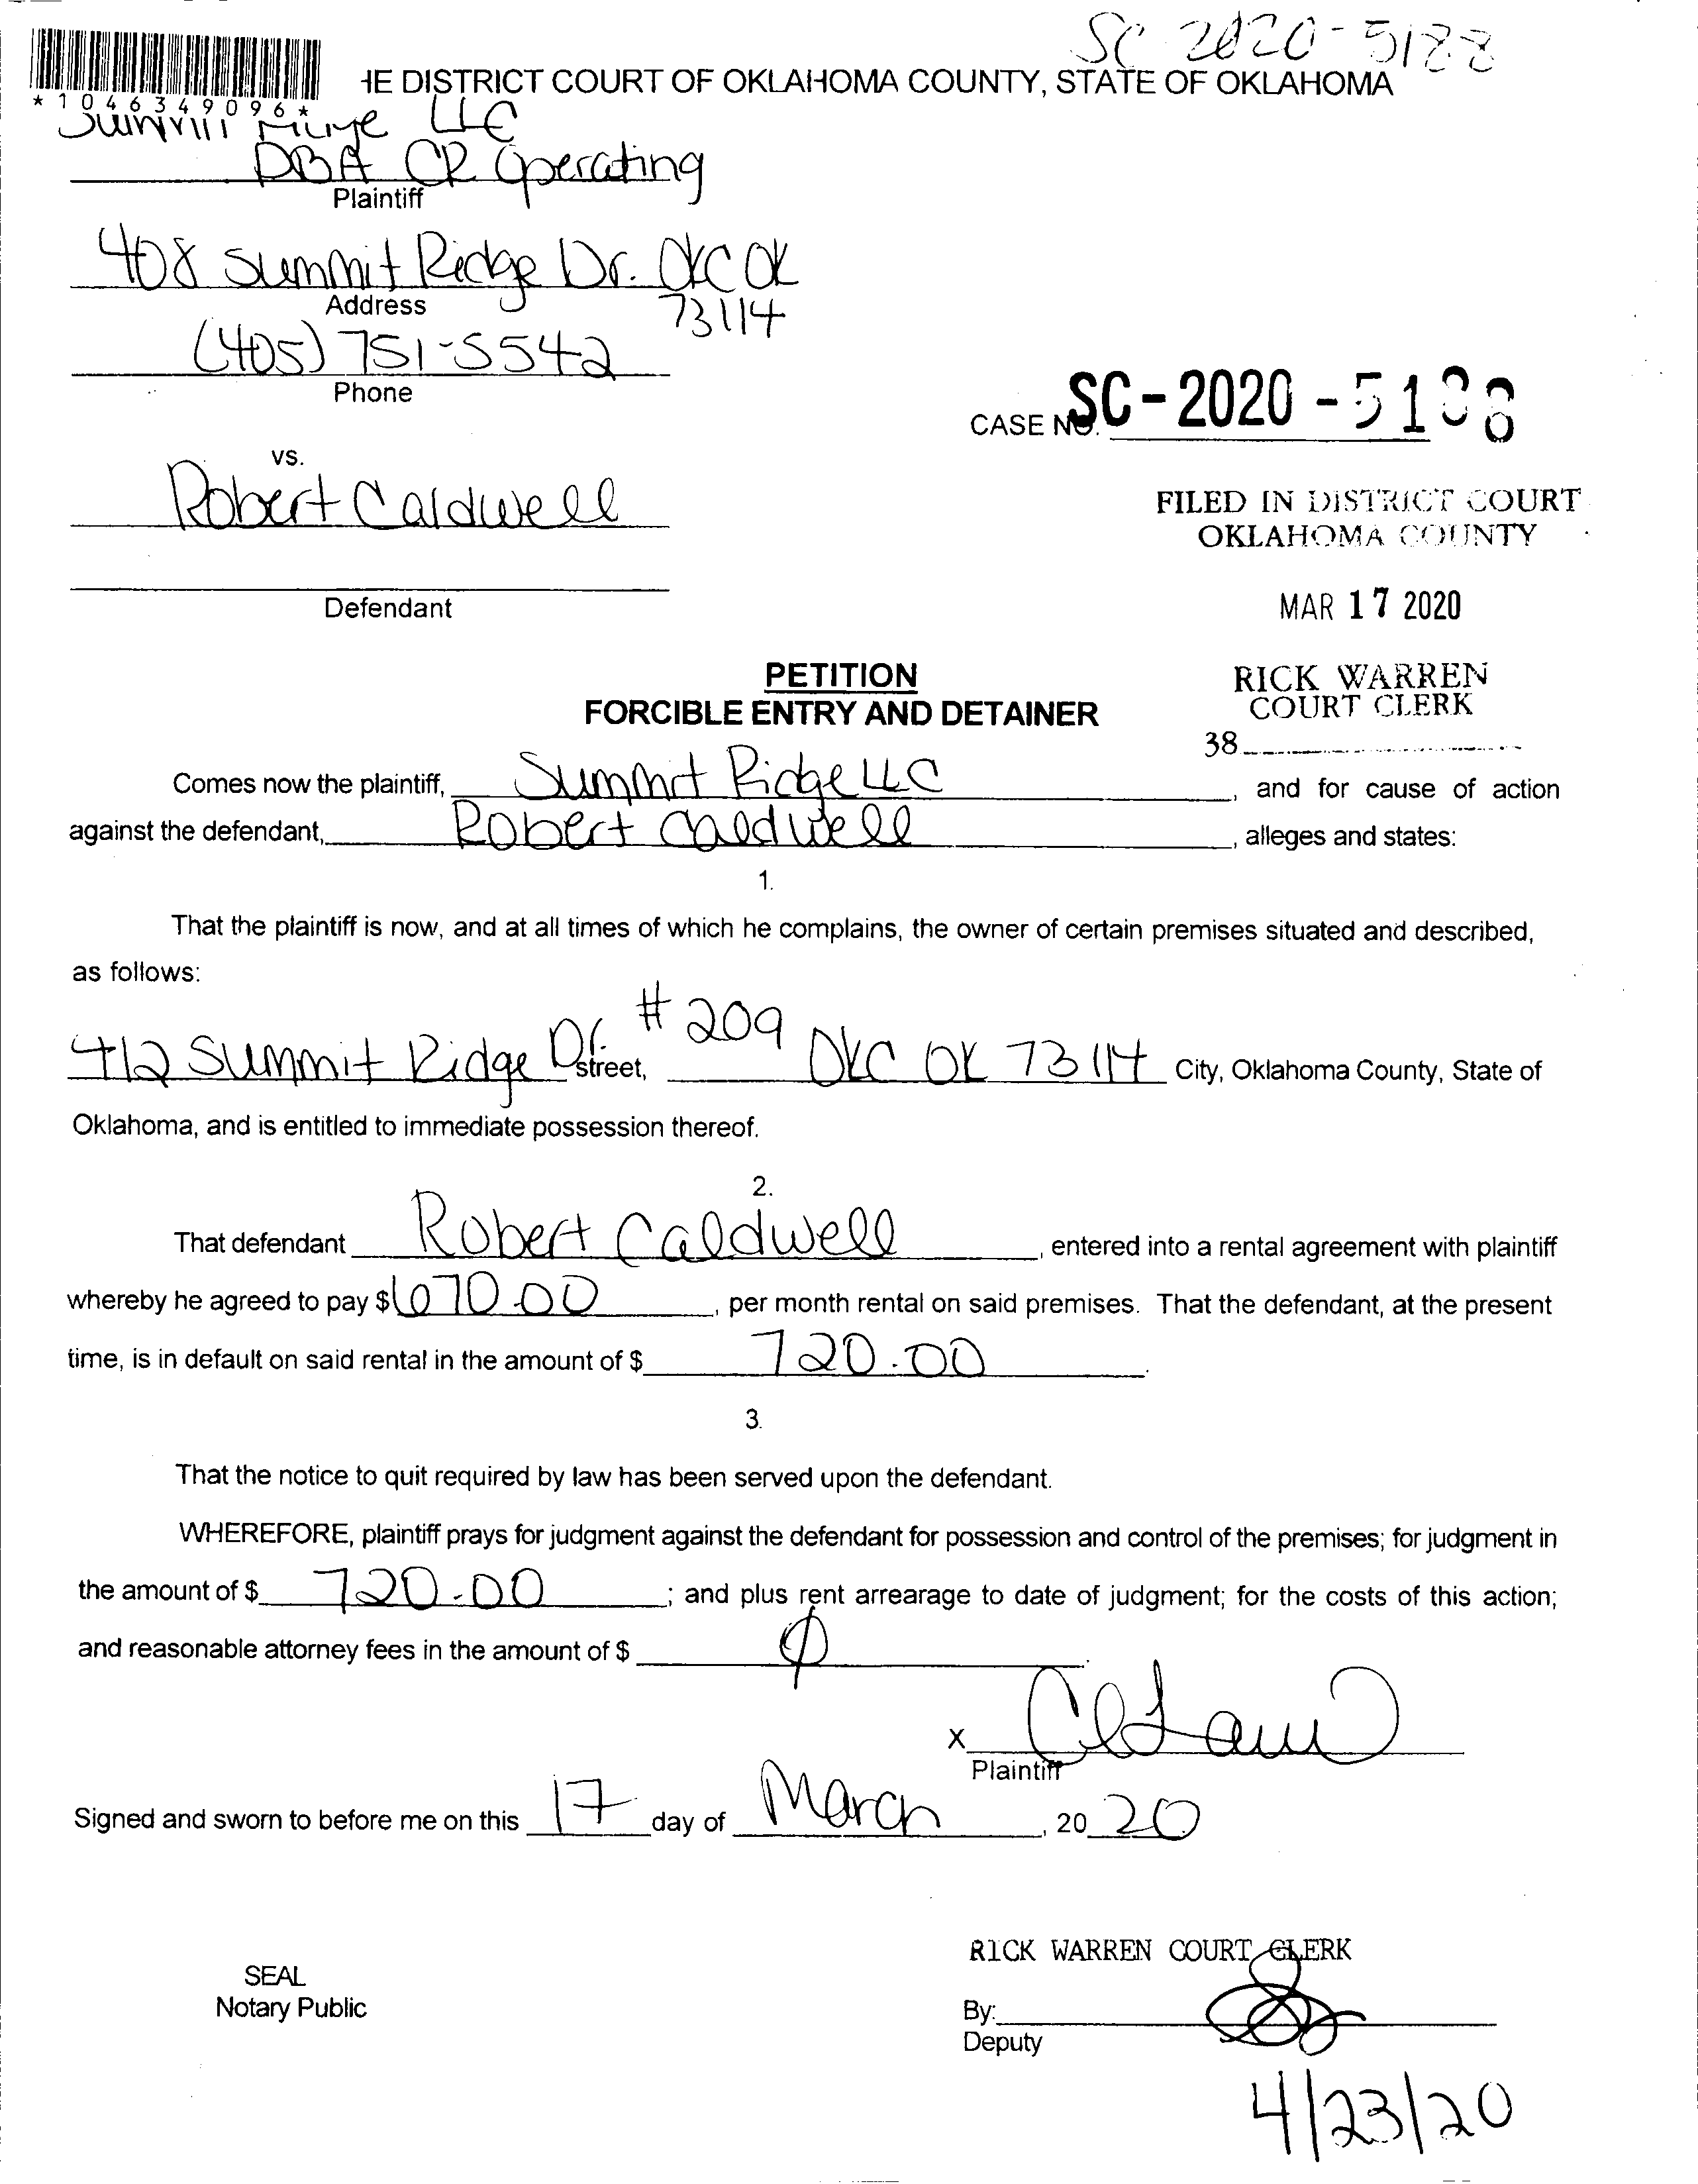 SC 2020-5188
HE DISTRICT COURT OF OKLAHOMA COUNTY, STATE OF OKLAHOMA
*1046349096*
LLC
DBA CR Operating
Plaintiff
408 Summit Ridge Dr. OKC OK
Address
73114
(405) 751-5542
Phone
CASE NO. SC-2020-5188
vs.
Robert Caldwell
FILED IN DISTRICT COURT
OKLAHOMA COUNTY
Defendant
MAR 17 2020
PETITION
FORCIBLE ENTRY AND DETAINER
RICK WARREN
COURT CLERK
38
Comes now the plaintiff, Summit Ridge LLC, and for cause of action
against the defendant, Robert Caldwell, alleges and states:
1.
That the plaintiff is now, and at all times of which he complains, the owner of certain premises situated and described,
as follows:
412 Summit Ridge Dr. street, #209 OKC OK 73114 City, Oklahoma County, State of
Oklahoma, and is entitled to immediate possession thereof.
2.
That defendant Robert Caldwell, entered into a rental agreement with plaintiff
whereby he agreed to pay $670.00, per month rental on said premises. That the defendant, at the present
time, is in default on said rental in the amount of $ 720.00.
3.
That the notice to quit required by law has been served upon the defendant.
WHEREFORE, plaintiff prays for judgment against the defendant for possession and control of the premises; for judgment in
the amount of $ 720.00; and plus rent arrearage to date of judgment; for the costs of this action;
and reasonable attorney fees in the amount of $ φ.
X
Plaintiff
Signed and sworn to before me on this 17 day of March, 20 20
RICK WARREN COURT CLERK
SEAL
Notary Public
By:
Deputy
4/23/20